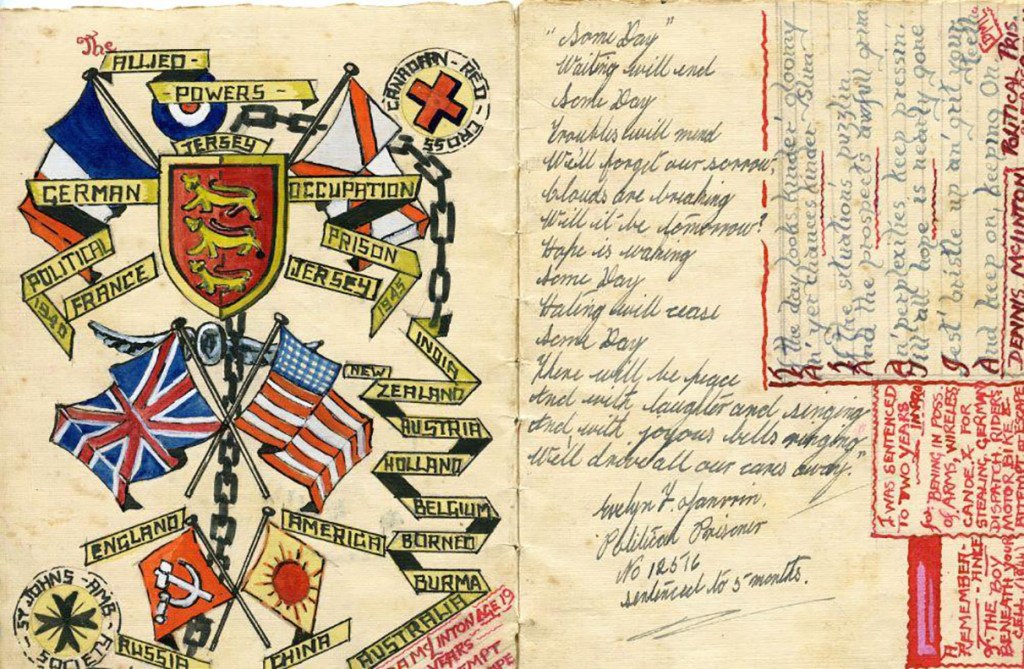 The
ALLIED -
- POWERS -
CANADIAN - RED - CROSS
JERSEY
GERMAN
OCCUPATION
POLITICAL
PRISON
FRANCE
JERSEY
1940
1945
INDIA
NEW
ZEALAND
AUSTRIA
HOLLAND
BELGIUM
BORNEO
BURMA
AUSTRALIA
ENGLAND
AMERICA
RUSSIA
CHINA
ST JOHNS - AMB
SOCIETY
INTON AGE 19
YEARS
"Some Day"
Waiting will end
Some Day
Troubles will mend
We'll forget our sorrow,
Clouds are breaking
Will it be tomorrow?
Hope is waking
Some Day
Hating will cease
Some Day
There will be peace
And with laughter and singing
And with joyous bells ringing
We'll drive all our cares away."
Evelyn F. Janvrin.
Political Prisoner
No 12516
sentenced to 5 months.
If the day looks kinder gloomy
An' yer chances kinder slim
If the situation's puzzlin
And the prospect's awful grim
An' perplexities keep pressin'
Till all hope is nearly gone
Jest bristle up an' grit your teeth
And keep on keeping On
DENNIS McLINTON POLITICAL PRIS.
I WAS SENTENCED
TO TWO YEARS
for BEING IN POSS.
of ARMS, WIRELESS
CANOE, & FOR
STEALING GERMAN
DISPATCH RIDER'S
MOTOR BIKE
A
REMEMBER-
ANCE
of THE BOY
BENEATH YOUR
CELL